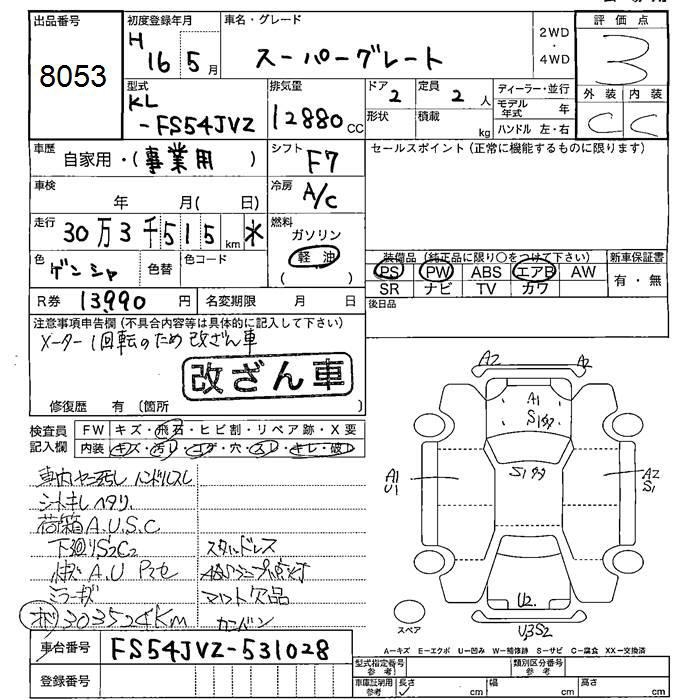 出品番号
8053
初度登録年月
H 16 5月
車名・グレード
スーパーグレート
2WD
・
4WD
評価点
3
外装 内装
C C
型式
KL
-FS54JVZ
排気量
12880 cc
ドア 2
形状
定員 2 人
積載 kg
ディーラー・並行
モデル年式 年
ハンドル 左・右
車歴
自家用・(事業用)
シフト
F7
セールスポイント(正常に機能するものに限ります)
車検
年 月( 日)
冷房
A/C
走行
30万3千515km
燃料
ガソリン
軽油
( )
色
ゲンシャ
色替
色コード
装備品(純正品に限り○をつけて下さい)
PS PW ABS エアB AW
SR ナビ TV カワ
新車保証書
有・無
R券 13,990 円
名変期限 月 日
後日品
注意事項申告欄(不具合内容等は具体的に記入して下さい)
メーター1回転のため改ざん車
改ざん車
修復歴 有(箇所 )
検査員
記入欄
FW キズ・飛石・ヒビ割・リペア跡・X要
内装 キズ・汚れ・コゲ・穴・スレ・キレ・破レ
シートキレ ヘタリ
荷箱A.U.S.C
下廻りS2C2
スタッドレス
ミラーキズ
マット欠品
303524Km
車台番号
FS54JVZ-531028
登録番号
A2 A2
A1
S1
S1
A1
U1
A2
S1
U2
U3S2
スペア
A−キズ E−エクボ U−凹み W−補修跡 S−サビ C−腐食 XX−交換済
型式指定番号
参考
類別区分番号
参考
車庫証明用
参考
長さ cm
幅 cm
高さ cm